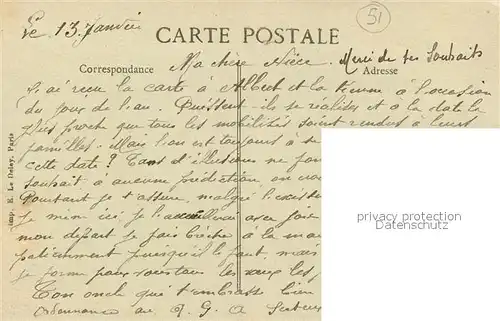 Le 13 Janvier
51
CARTE POSTALE
Ma chère Nièce. Merci de tes Souhaits
Correspondance Adresse
J'ai reçu la carte à Albert et la tienne à l'occasion
du Jour de l'an. Puissent-ils se réaliser et à la date la
plus proche que tous les mobilisés soint rendus à leurs
familles. Mais l'on est toujours à se
cette date? Tant d'illusions ne
souhait à aucune prédiction on
Pourtant je t'assure, malgré l'existence
je ici, je avec joie
mon départ je fais
patiemment puisqu'il le faut, mais
je forme pour vous tous les vœux les
Ton oncle qui t'embrasse bien
Ordonnance au G. A
Imp. E. Le Deley, Paris
privacy protection
Datenschutz